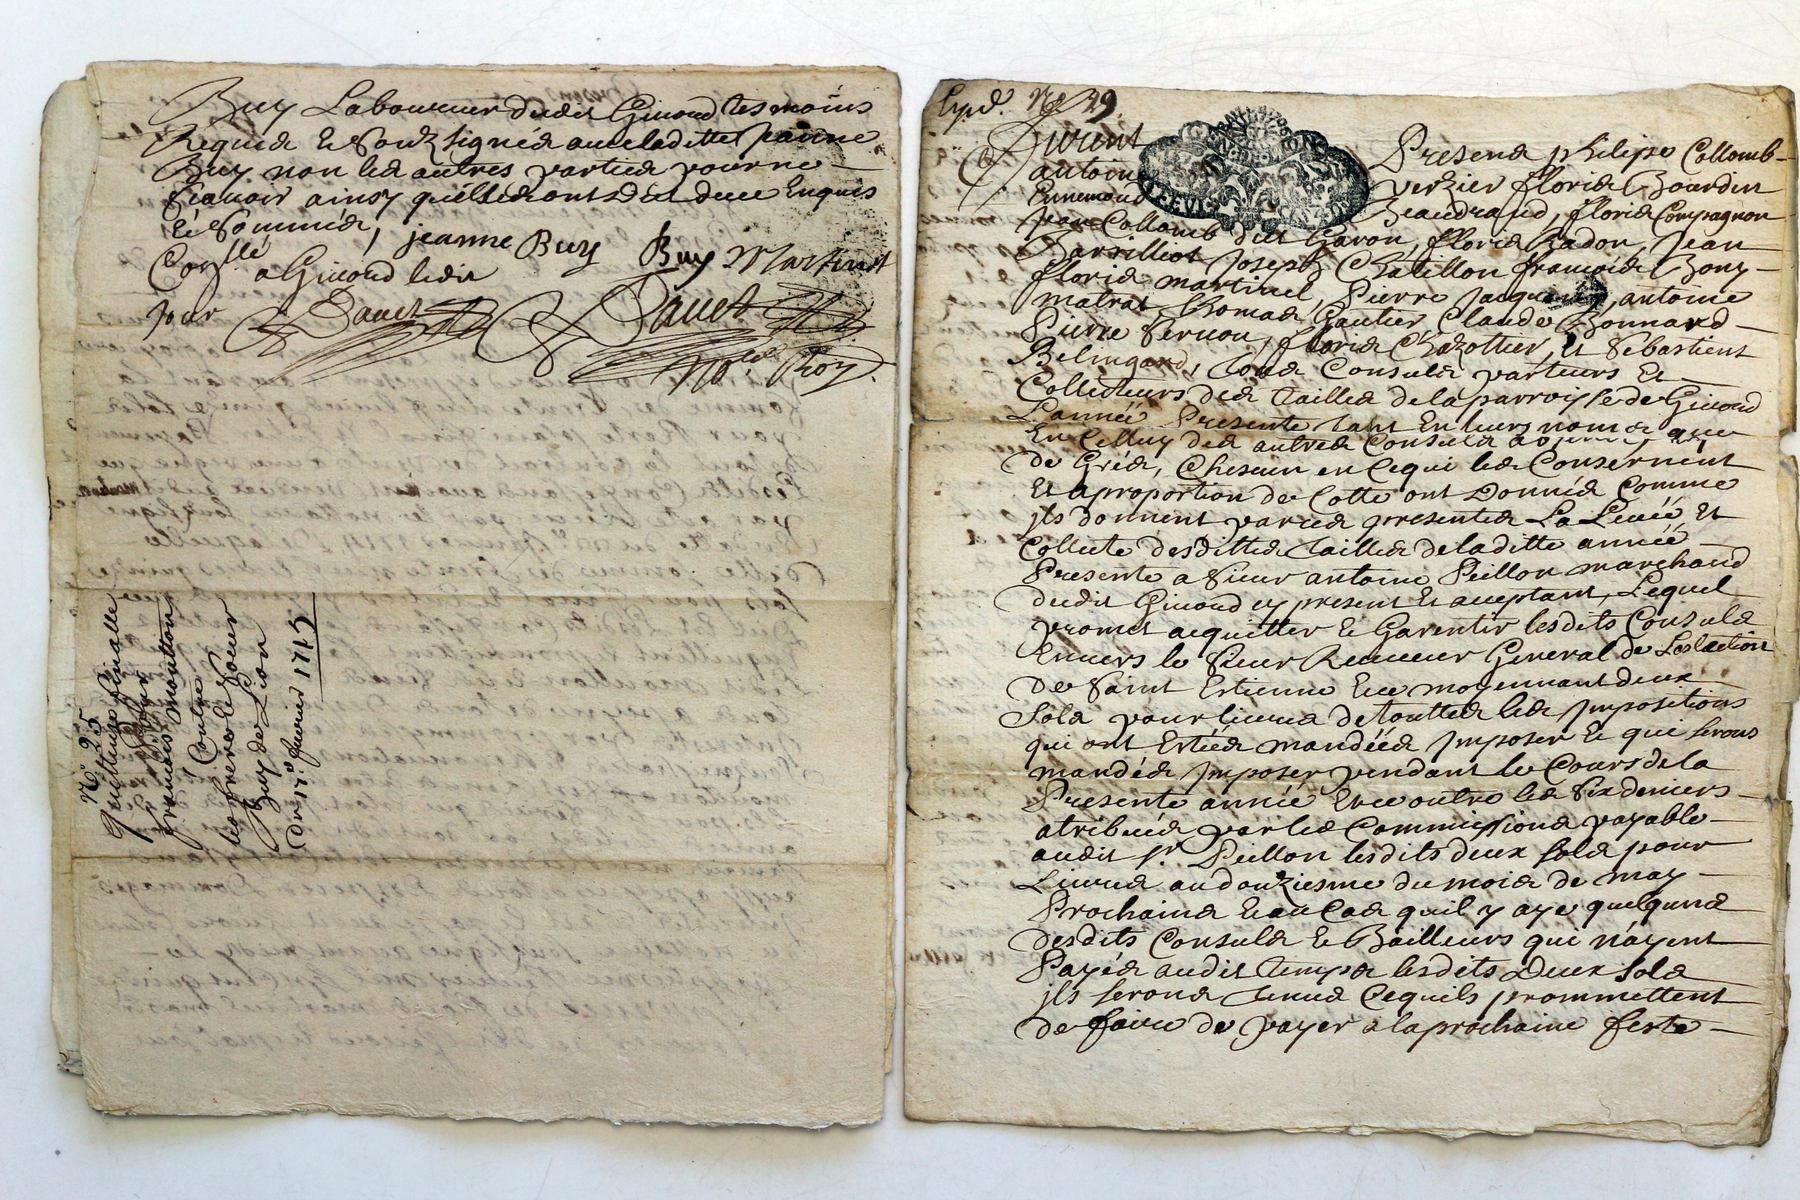 Buy Laboureur dudit Givord tesmoins
Requis & Soubsignés avec laditte Jeanne
Buy non les autres parties pour ne
scavoir ainsy quelles ont dit deue Enquis
& Sommés, jeanne Buy Buy Martinet
Con^llé a Givord ledit
jour Dauet Dauet
No^re Roy.
N° 25
quittance finalle
francois mouton
Contre
les freres & soeur
Buy de Lion
du 17^e fevrier 1715
Expd. N° 29
Furent Presens philipe Collomb
antoine Verzier floris Bourdin
Ennemond Beaudrand, floris Compagnon
Jean Collomb dit Garon, floris Radon, Jean
Barrilliot Joseph Chatillon francois Bony
floris martinel, Pierre Jacquemet, antoine
matrat, thomas Gautier Claude Bonnard
Pierre Vernon, floris Chazottier, et Sebastient
Belingard, tous Consuls parteurs Et
Collecteurs des tailles de la parroisse de Givord
L'année Presente tant En leurs noms que
En Celluy des autres Consuls
de Grés, Chescun en Cequi les Consernent
Et aproportion de Cotte ont Donnés Comme
ils donnent par ces presentes La Levée Et
Collecte desdittes tailles de laditte année
Presente a sieur antoine Peillon marchand
dudit Givord cy present Et acceptant, Lequel
promet acquitter & Garentir lesdits Consuls
Envers le sieur Receveur General de Leslection
de Saint Estienne & ce moyennant deux
sols pour livres de touttes les Impositions
qui ont Estées mandéés Imposer & qui serons
mandés Imposer pendant le Cours de la
Presente année & ce outre les six deniers
atribués par les Commissions payable
audit sr. Peillon lesdits deux sols pour
Livres au douziesme du mois de may
Prochains & au Cas quil y aye quelquns
desdits Consuls & Bailleurs qui n'ayent
Payés audit temps lesdits Deux sols
ils serons tenus Cequils prommettent
de faire de payer a la prochaine feste